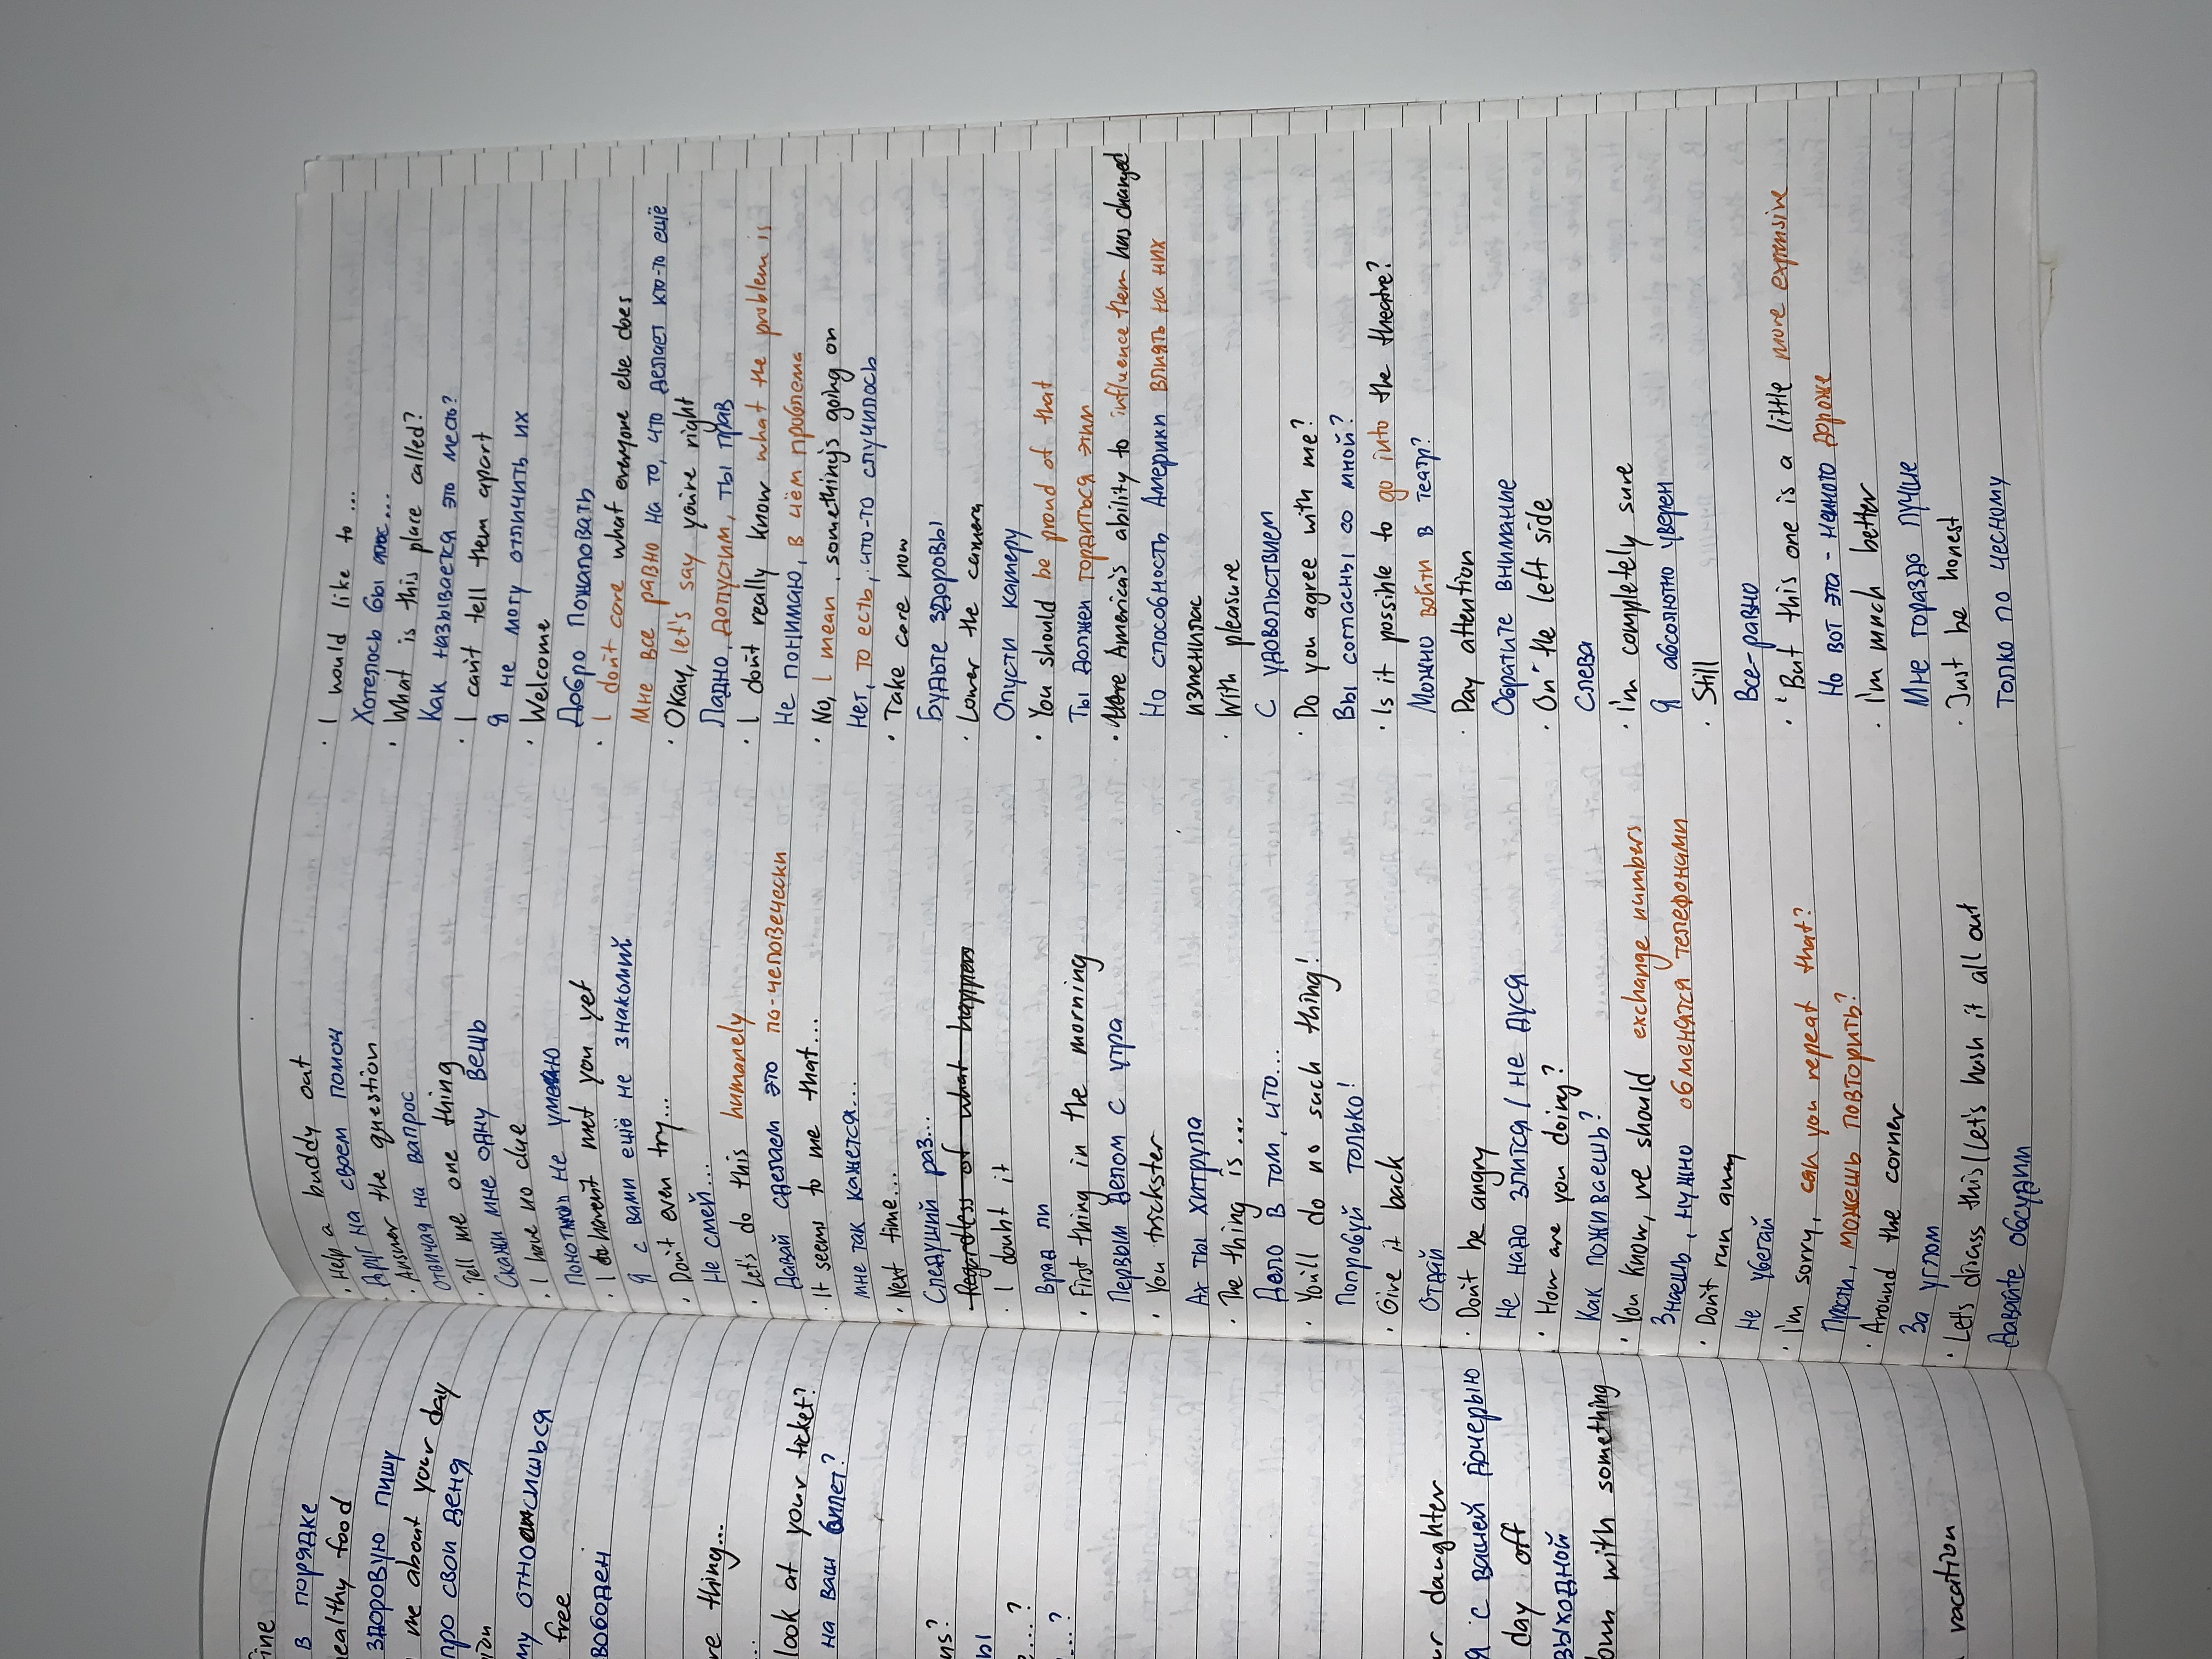 fine
в порядке
healthy food
здоровую пищу
me about your day
про свои деня
му относишься
free
вободен
re thing...
look at your ticket?
на ваш билет?
ns?
ы
...?
...?
ur daughter
я с вашей дочерью
day off
выходной
own with something
vacation
· Help a buddy out
Друг на своем помоч
· Answer the question
Отвичая на вапрос
· Tell me one thing
Скажи мне одну вещь
· I have no clue
Не умею
· I haven't met you yet
Я с вами ещё не знакомий
· Don't even try...
Не смей...
· Let's do this humanely
Давай сделаем это по-человечески
· It seems to me that...
мне так кажется...
· Next time...
Следущий раз...
Regardless of what happen
· I doubt it
Врад ли
· First thing in the morning
Первым делом с утра
· You trickster
Ах ты хитрула
· The thing is...
Дело в том, что...
· You'll do no such thing!
Попробуй только!
· Give it back
Отдай
· Don't be angry
Не надо злится / не дуся
· How are you doing?
Как поживаешь?
· You know, we should exchange numbers
Знаешь, нужно обменятся телефонами
· Don't run away
Не убегай
· I'm sorry, can you repeat that?
Прости, можешь повторить?
· Around the corner
За углом
· Let's discuss this / Let's hash it all out
Давайте обсудим
· I would like to...
Хотелось бы
· What is this place called?
Как називается это месть?
· I can't tell them apart
Я не могу отличить их
· Welcome
Добро Пожаловать
· I don't care what everyone else does
Мне все равно на то, что делает кто-то ещё
· Okay, let's say you're right
Ладно, допустим, ты прав
· I don't really know what the problem is
Не понимаю, в чём проблема
· No, I mean, something's going on
Нет, то есть, что-то случилось
· Take care now
Будьте здоровы
· Lower the camera
Опусти камеру
· You should be proud of that
Ты должен гордиться этим
· America's ability to influence them has changed
Но способность Америки влиять на них
изменилас
· With pleasure
С удовольствием
· Do you agree with me?
Вы согласны со мной?
· Is it possible to go into the theatre?
Можно войти в театр?
· Pay attention
Обратите внимание
· On the left side
Слева
· I'm completely sure
Я абсолютно уверен
· Still
Все-равно
· But this one is a little more expensive
Но вот эта - немного дороже
· I'm much better
Мне гораздо лучше
· Just be honest
Толко по чесному